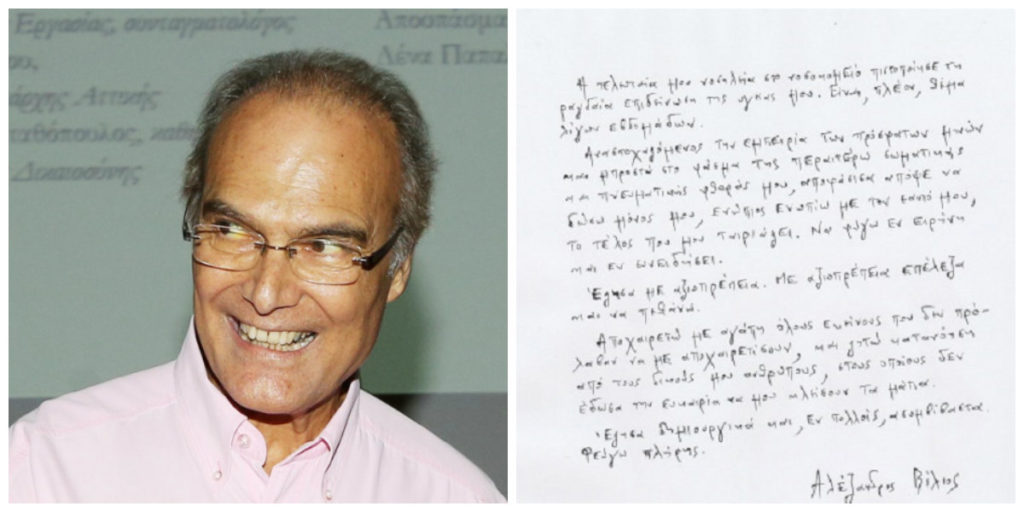 Εργασίας, συνταγματολόγος
ου,
άρχης Αττικής
ταθόπουλος, καθη
Δικαιοσύνης
Αποσπάσμα
Λένα Παπα
Η τελευταία μου νοσηλεία στο νοσοκομείο πιστοποίησε τη
ραγδαία επιδείνωση της υγείας μου. Είναι, πλέον, θέμα
λίγων εβδομάδων.
Αναστοχαζόμενος την εμπειρία των πρόσφατων μηνών
και μπροστά στο φάσμα της περαιτέρω σωματικής
και πνευματικής φθοράς μου, αποφάσισα απόψε να
δώσω μόνος μου, ενώπιος ενωπίω με τον εαυτό μου,
το τέλος που μου ταιριάζει. Να φύγω εν ειρήνη
και εν συνειδήσει.
Έζησα με αξιοπρέπεια. Με αξιοπρέπεια επέλεξα
και να πεθάνω.
Αποχαιρετώ με αγάπη όλους εκείνους που δεν πρό-
λαβαν να με αποχαιρετίσουν, και ζητώ κατανόηση
από τους δικούς μου ανθρώπους, στους οποίους δεν
έδωσα την ευκαιρία να μου κλείσουν τα μάτια.
Έζησα δημιουργικά και, εν πολλοίς, ασυμβίβαστα.
Φεύγω πλήρης.
Αλέξανδρος Βέλιος